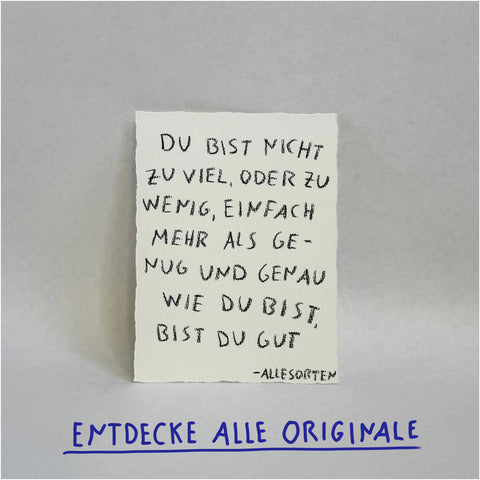 DU BIST NICHT
ZU VIEL, ODER ZU
WENIG, EINFACH
MEHR ALS GE-
NUG UND GENAU
WIE DU BIST,
BIST DU GUT
-ALLESORTEN
ENTDECKE ALLE ORIGINALE